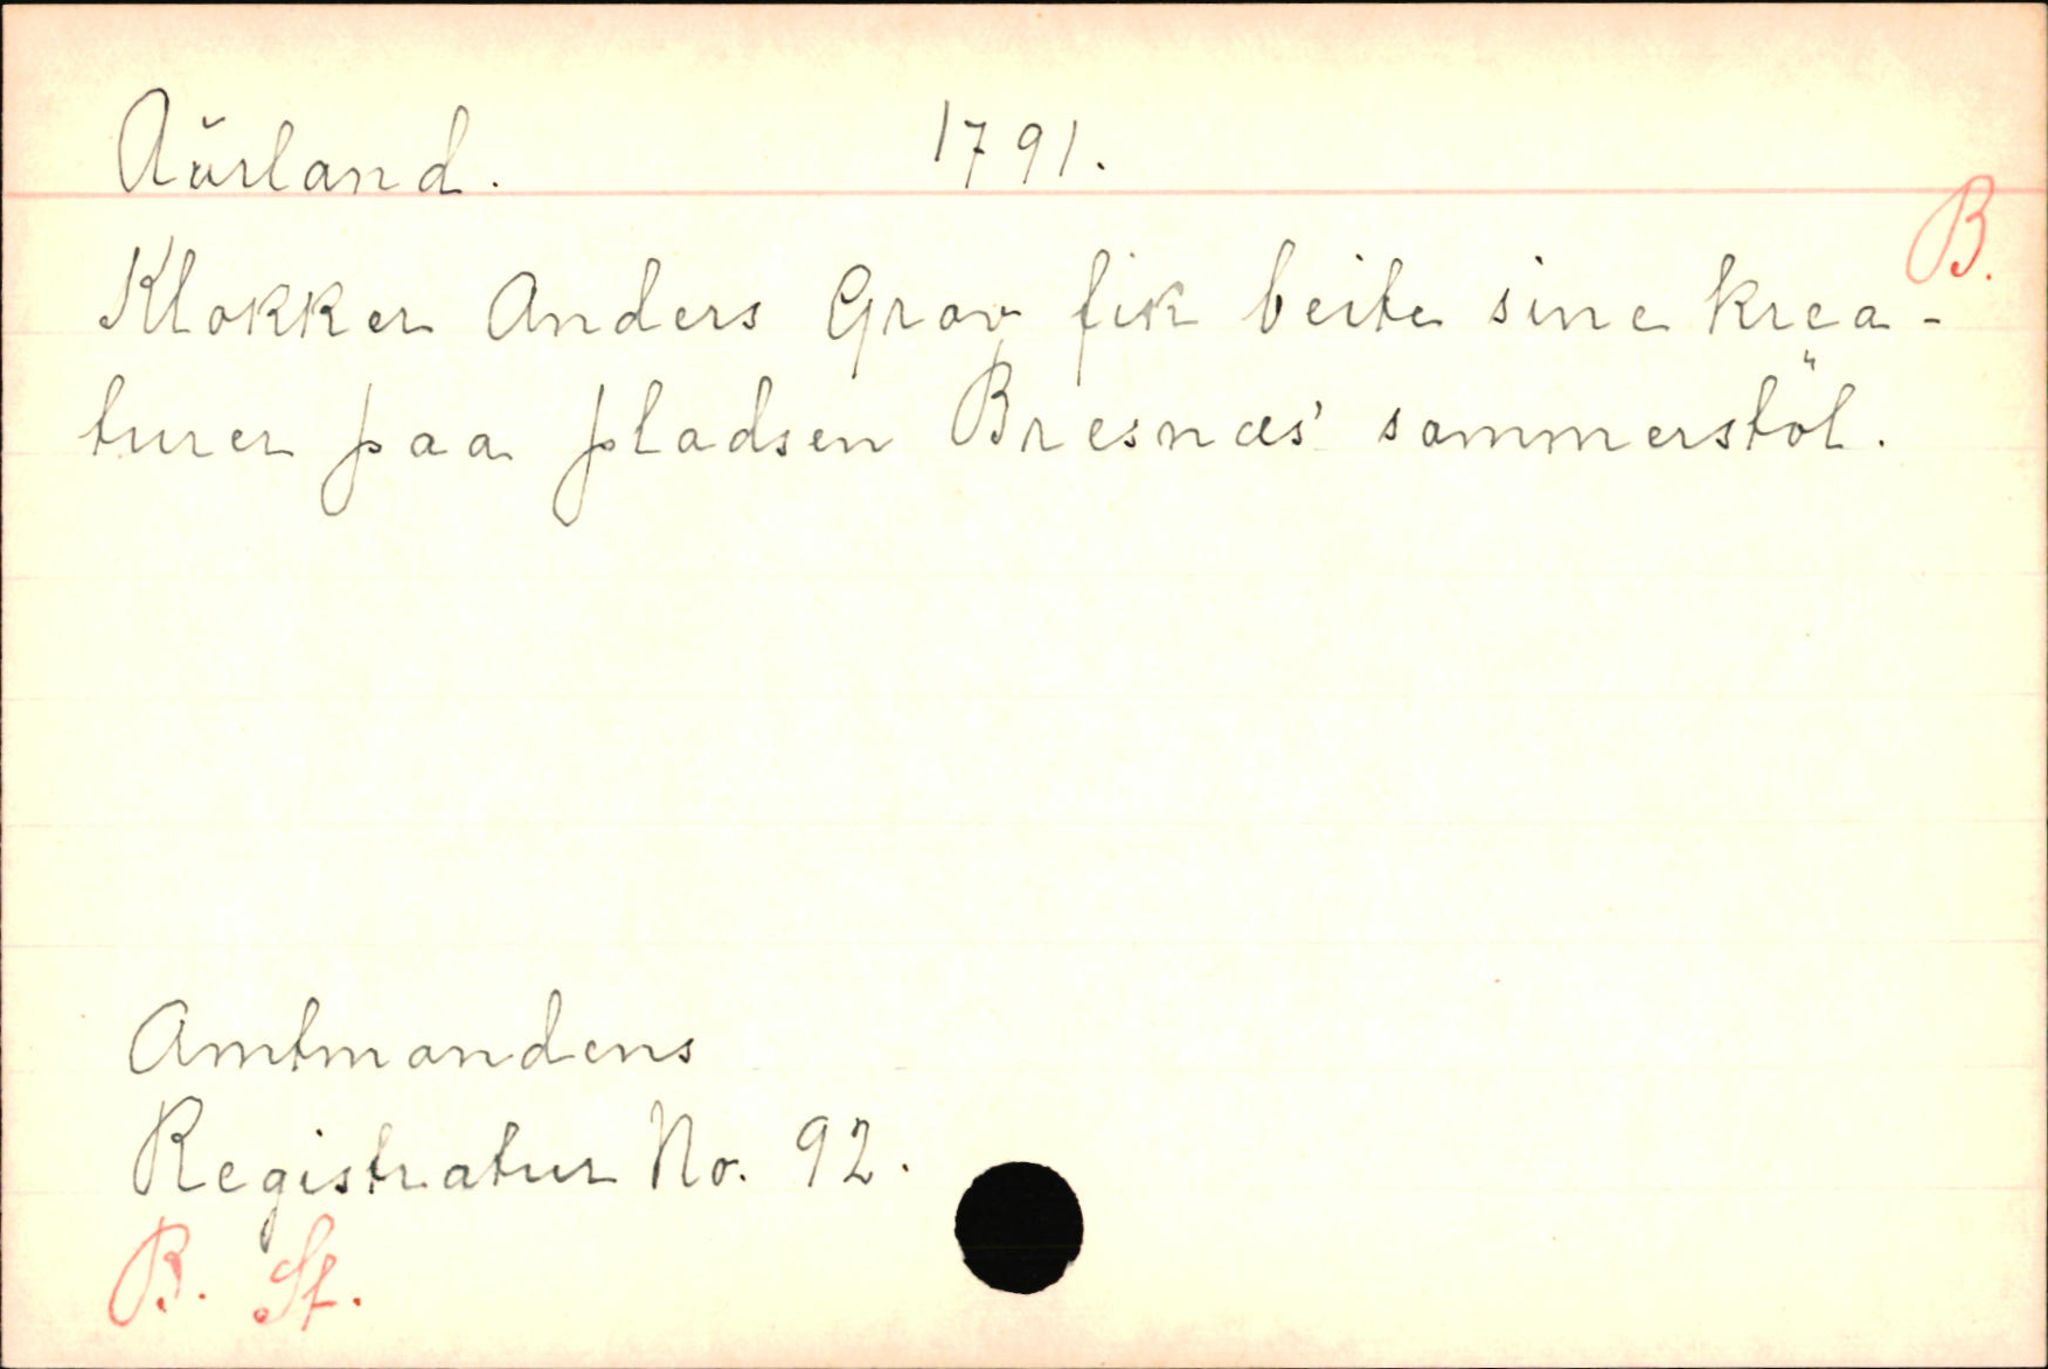 Aŭrland. 1791.
B.
Klokker Anders Grov fik beite sine krea-
turer paa pladsen Bresnæs' sommerstöl.
Amtmandens
Registratur No. 92.
B. St.